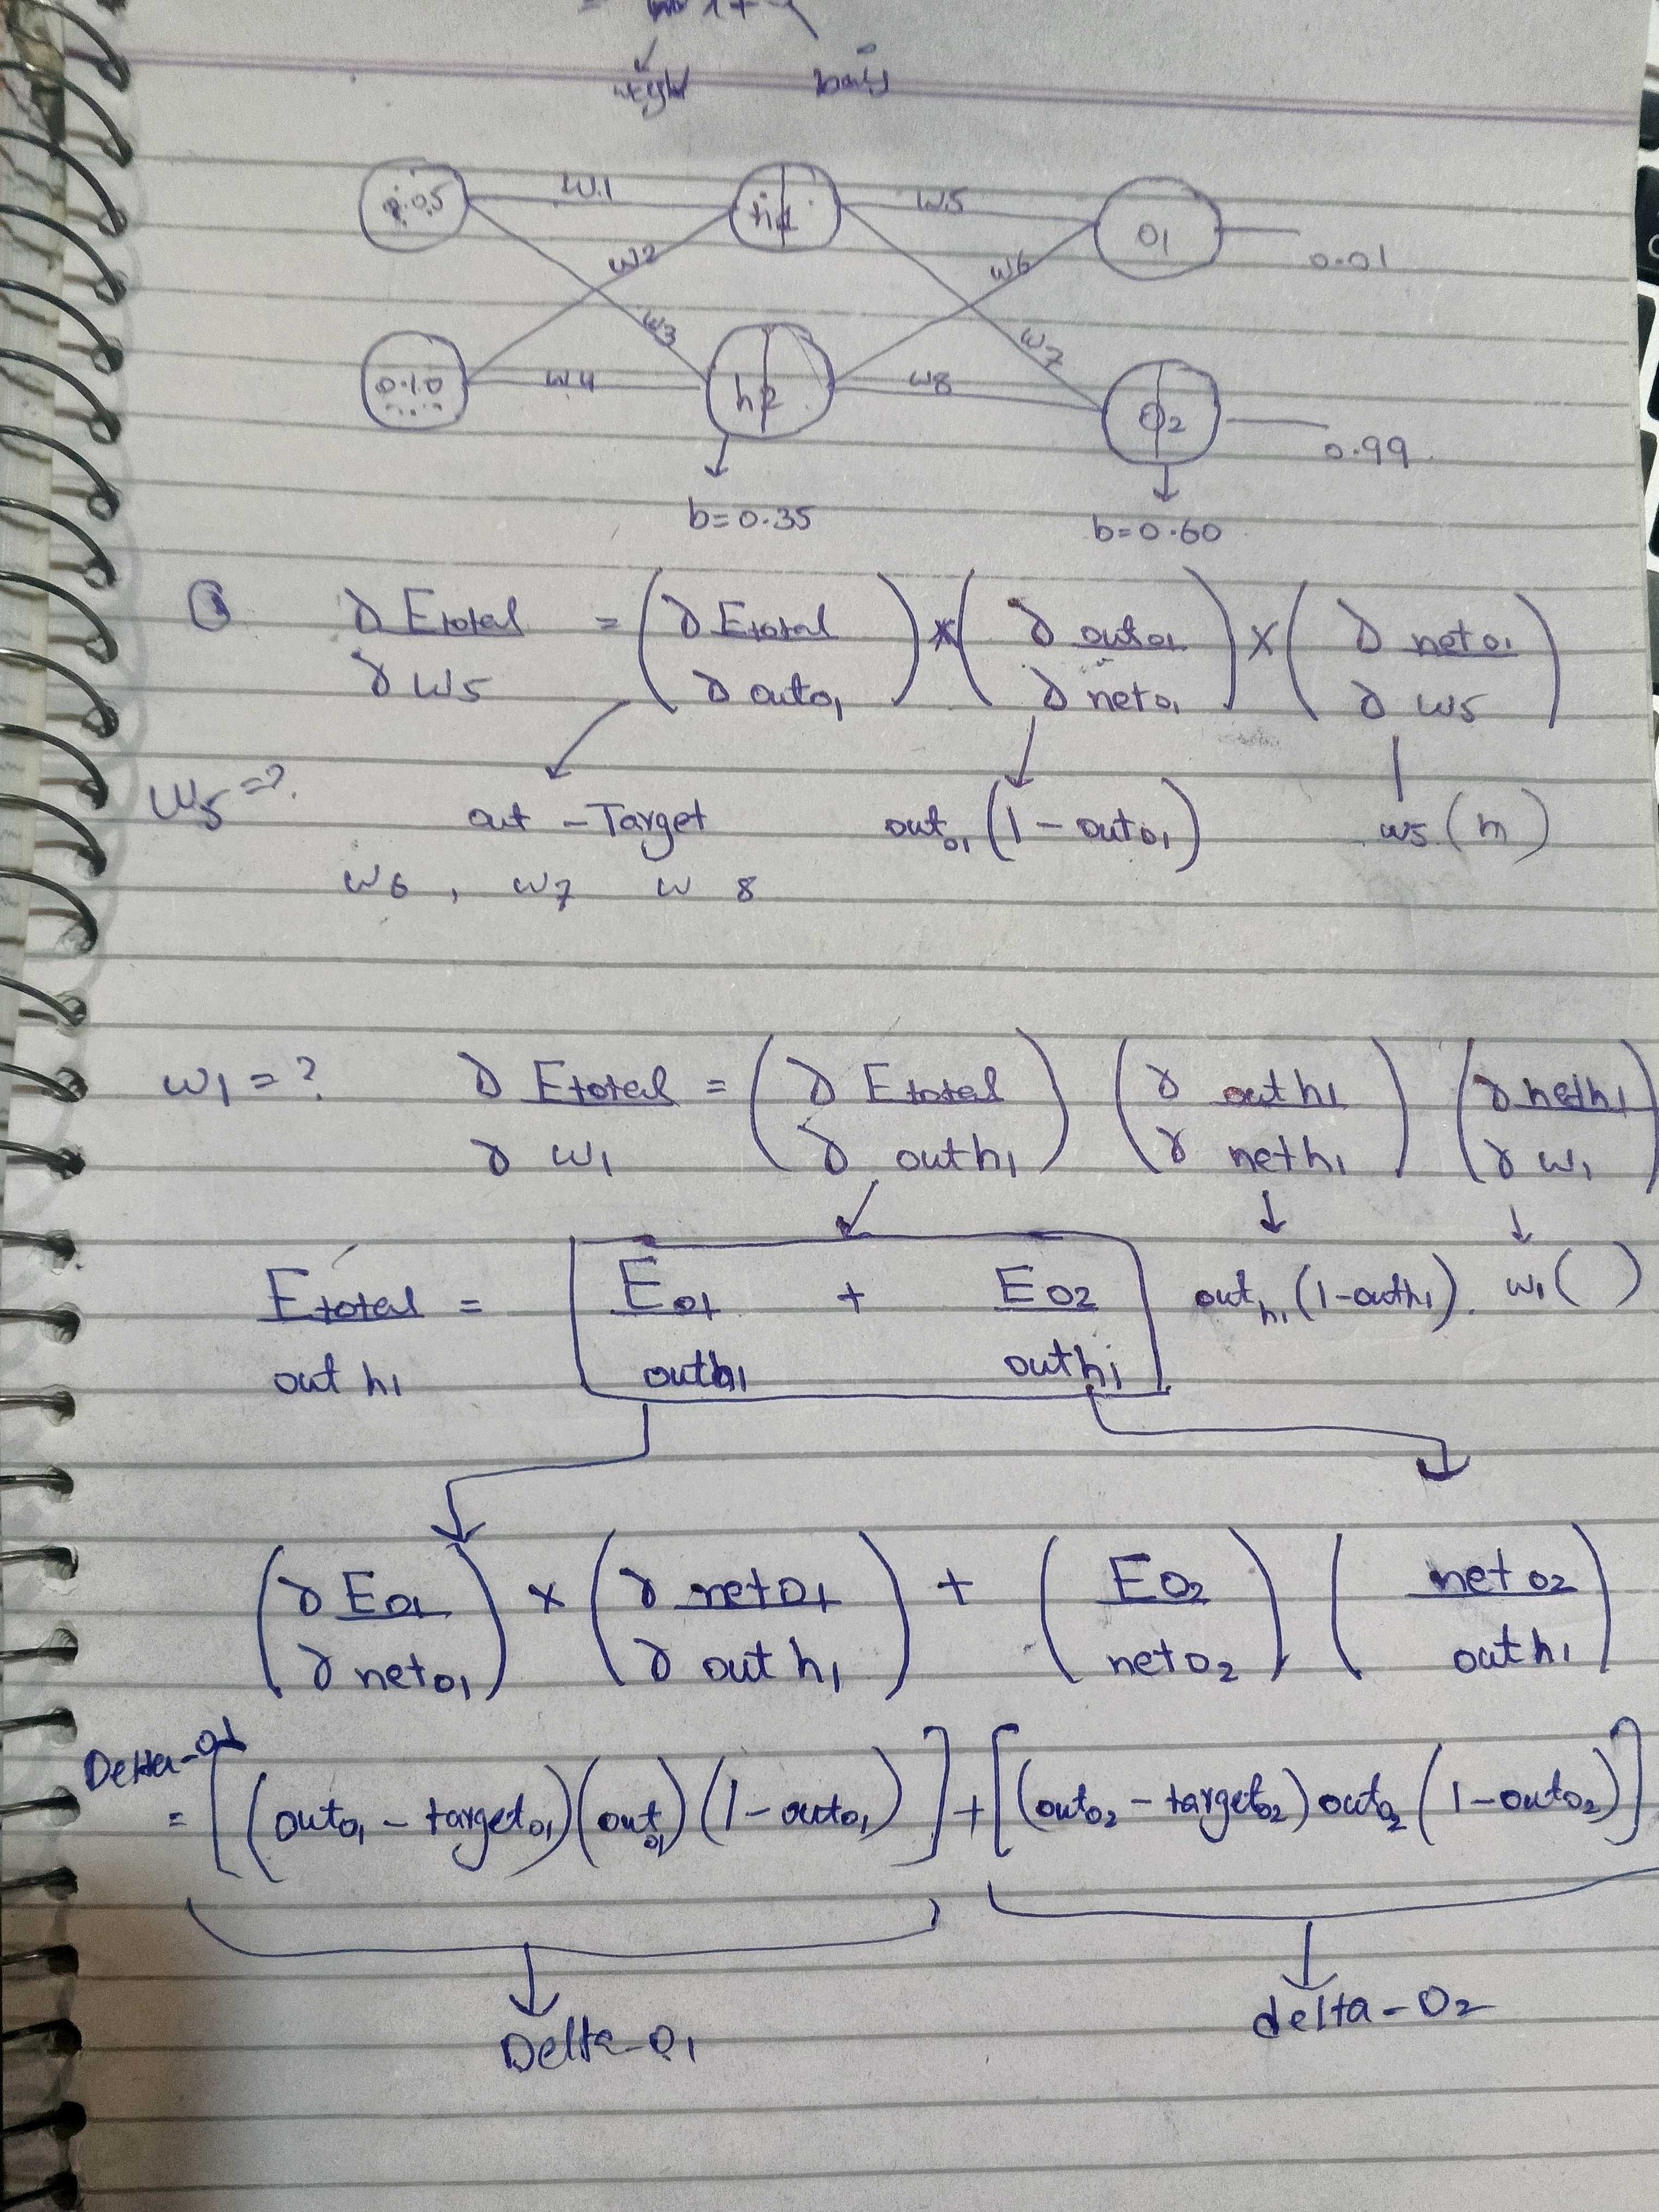 weight bais
0.05 w1 h1 w5 O1 0.01
w2 w6
w3 w7
0.10 w4 h2 w8 O2 0.99
b=0.35 b=0.60
∂ Etotal / ∂ w5 = (∂ Etotal / ∂ outo1) * (∂ outo1 / ∂ neto1) × (∂ neto1 / ∂ w5)
w5=?. out - Target outo1 (1 - outo1) w5 (h)
w6 , w7 w8
w1 = ? ∂ Etotal / ∂ w1 = (∂ Etotal / ∂ outh1) (∂ outh1 / ∂ neth1) (∂ neth1 / ∂ w1)
Etotal / out h1 = Eo1 / outh1 + EO2 / outh1 outh1 (1-outh1). w1 ( )
(∂ Eo1 / ∂ neto1) × (∂ netO1 / ∂ out h1) + (EO2 / netO2) (net o2 / outh1)
Delta-O1
= [(outo1 - targeto1)(outo1)(1-outo1)] + [(outo2 - targeto2) outo2 (1-outo2)]
Delta-O1 delta-O2